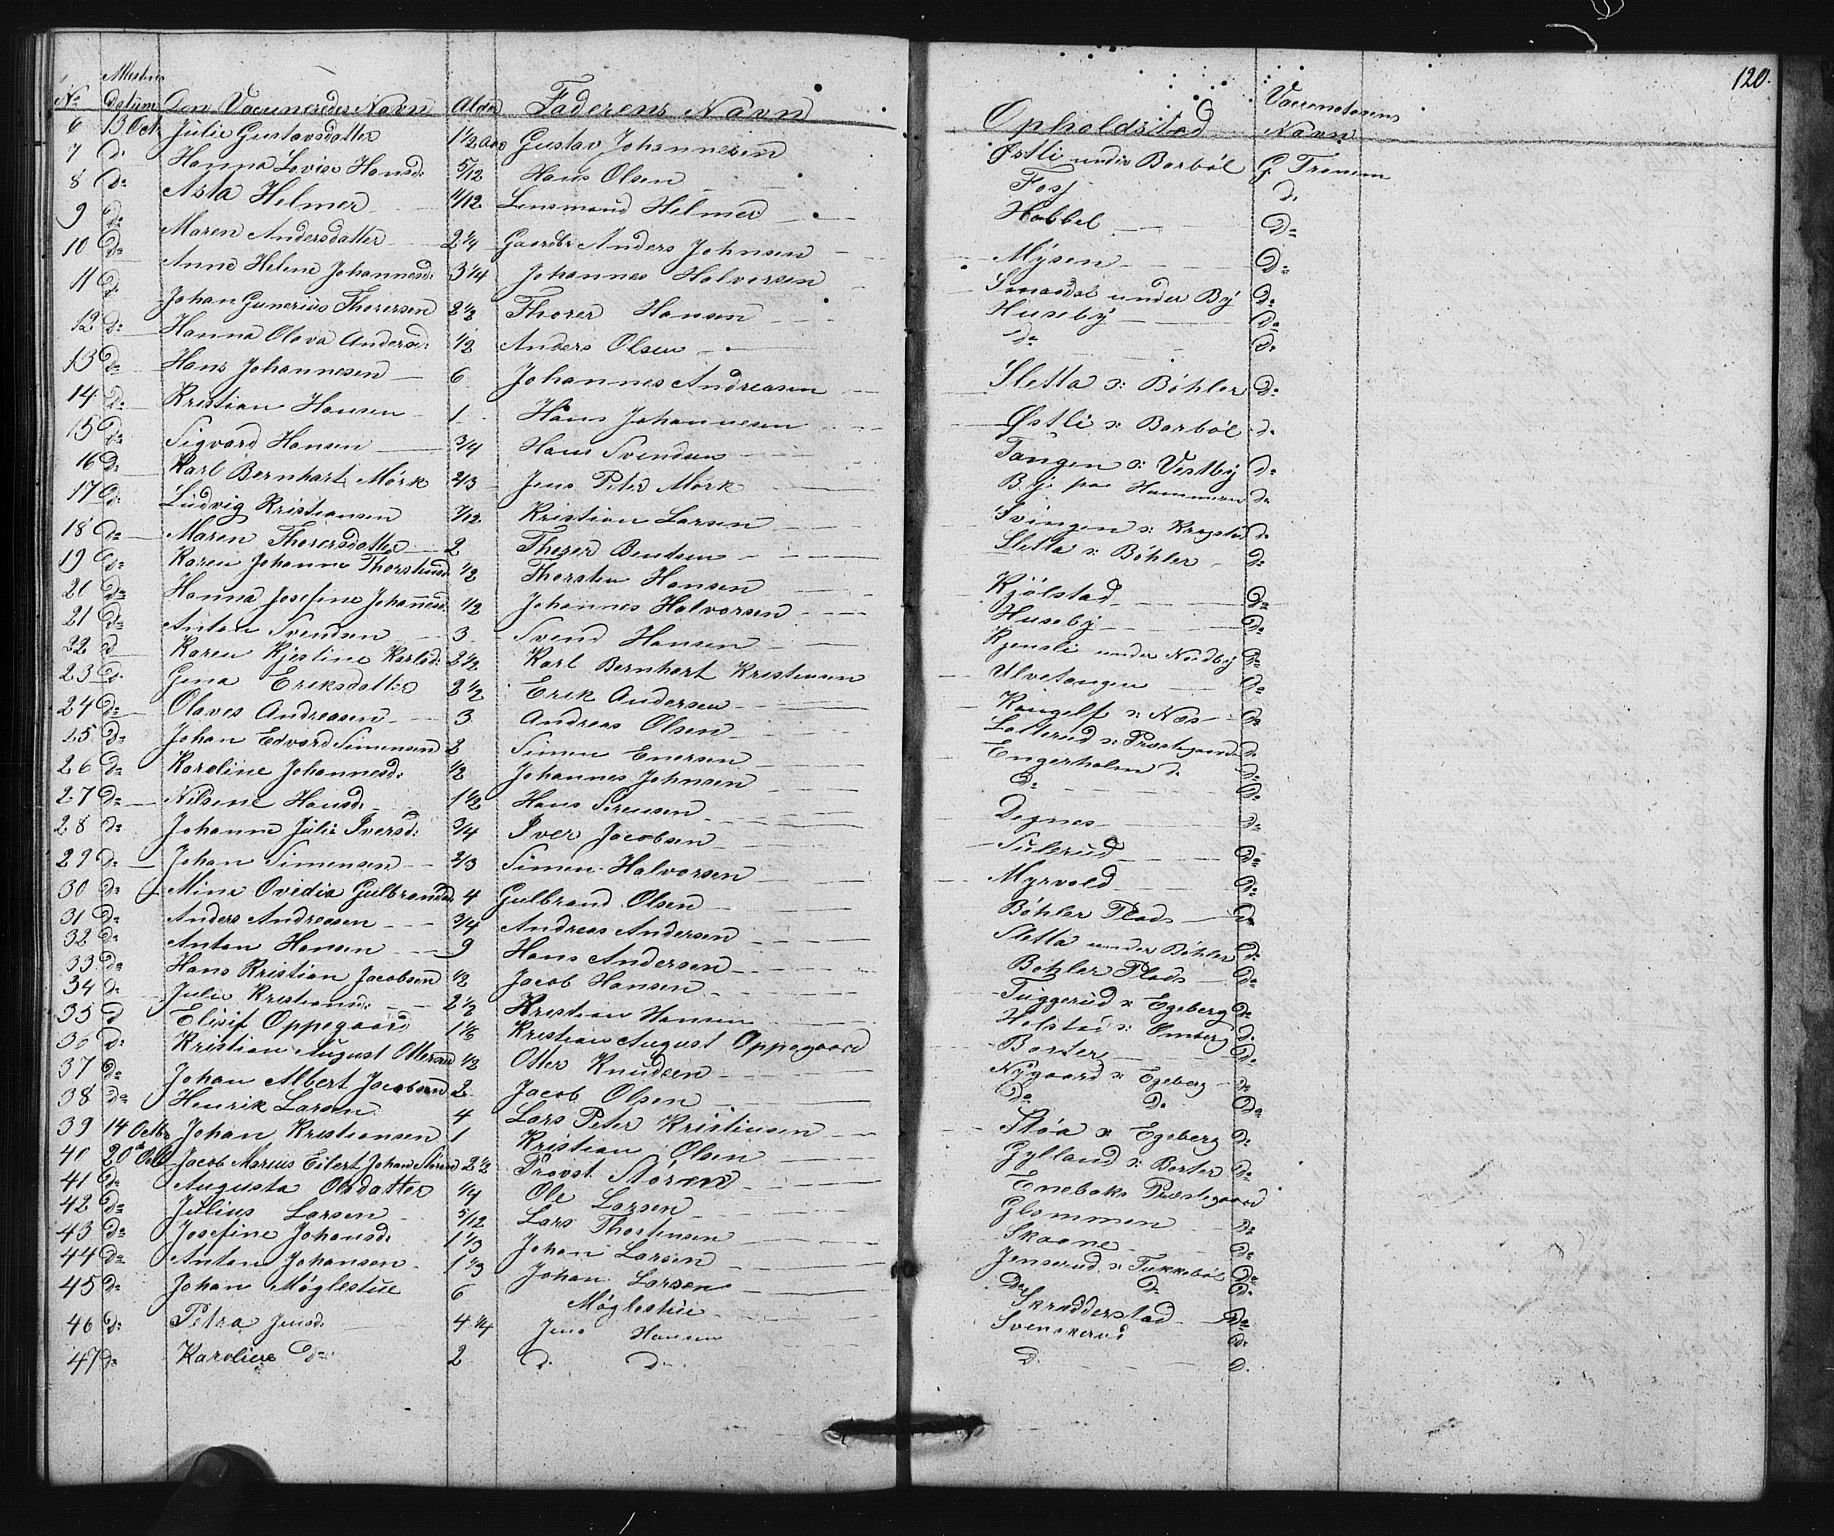 120.
No Attestens Datum Den Vaccineredes Navn Alder Faderens Navn Opholdsstad Vaccinatorens Navn
6 13 Oct. Julie Gustavsdatter 1 1/2 Aar Gustav Johannesen Østli under Borbøl G. Tronem
7 d: Hanna Lovise Hansd: 5/12 Hans Olsen Fosj d:
8 d: Asta Helmer 4/12 Lensmand Helmer Hobbel Do
9 d: Maren Andersdatter 2 1/4 Gaardbr Anders Johnsen Mysen Do
10 Do Anne Helene Johannesd: 3 1/4 Johannes Halvorsen under By Do
11 d: Johan Gunerius Thorersen 2 1/2 Thorer Hansen Huseby Do
12 d: Hanna Olava Andersd: 1/2 Anders Olsen do d:
13 do Hans Johannesen 6 Johannes Andreasen Sletta u: Bøhler do
14 d: Kristian Hansen 1 Hans Johannesen Østli u: Borbøl d:
15 do Sigvard Hansen 3/4 Hans Svendsen Tangen u: Vestby do
16 d: Karl Bernhart Mørk 2/3 Jens Peter Mørk By paa Hammeren do
17 d: Ludvig Kristiansen 7/12 Kristian Larsen Svingen u: d:
18 do Maren Thorersdatter 2 Thorer Bentsen Sletta u: Bøhler do
19 do Karen Johanne Thorstensd 1/2 Thorsten Hansen Kjølstad do
20 do Hanna Josefine Johannesd: 1/2 Johannes Halvorsen Huseby do
21 d: Anton Svendsen 3 Svend Hansen Kjensli under Nordby do
22 d Karen Kjestine Karlsd: 2 1/2 Karl Bernhart Kristensen Ulvetangen do
23 d: Gina Eriksdatter 2 1/2 Erik Andersen u: Næs do
24 do Olaves Andreasen 3 Andreas Olsen u: Præstegaard d:
25 do Johan Edvard Simensen 2 Simen Enersen Engerholm d: d:
26 do Karoline Johannesd: 1/2 Johannes Johnsen do do
27 do Nilsine Hansd. 1 1/2 Hans Sørensen Degnes do
28 do Johanne Julie Iversd: 3/4 Iver Jacobsen Sulerud do
29 do Johan Simensen 2/3 Simen Halvorsen Myrvold do
30 do Mine Ovidia Gulbrandsd 4 Gulbrand Olsen Bøhler Plads do
31 do Anders Andreasen 3/4 Andreas Andersen Sletta under Bøhler d:
32 do Anton Hansen 9 Hans Andersen Bøhler Plads do
33 do Hans Kristian Jacobsen 1/2 Jacob Hansen Tuggerud u: Egeberg do
34 d: Julie Kristiansd: 2 1/2 Kristian Hansen Holstad u: d:
35 d Elisif Oppegaard 1 1/6 Kristian August Oppegaard Borter do
36 d: Kristian August Ottersen 1/2 Otter Knudsen Nygaard u: Egeberg do
37 do Johan Albert Jacobsen 2 Jacob Olsen Do D: Do
38 do Henrik Larsen 4 Lars Peter Kristiansen Støa u: Egeberg do
39 14 Octbr Johan Kristiansen 1 Kristian Olsen Gylland u: Borter do
40 20de Octb Jacob Marius Eilert Johan Støren 2 1/2 Provst Støren Enebaks Præstegaard
41 do Augusta Olsdatter 1/4 Ole Larsen Glommen do
42 do Julius Larsen 5/12 Lars Thorstensen Skaane do
43 do Josefine Johansd. 1 1/3 Johan Larsen Jenserud u: Tukkebøl do
44 do Anton Johansen 1 1/3 Johan Larsen Do D: d:
45 do Johan Møglestue 6 Møglestue Skrædderstad do
46 d: Petra Jensd: 4 1/4 Jens Hansen Svenskerud d:
47 do Karoline Do 2 d. d. d. d.